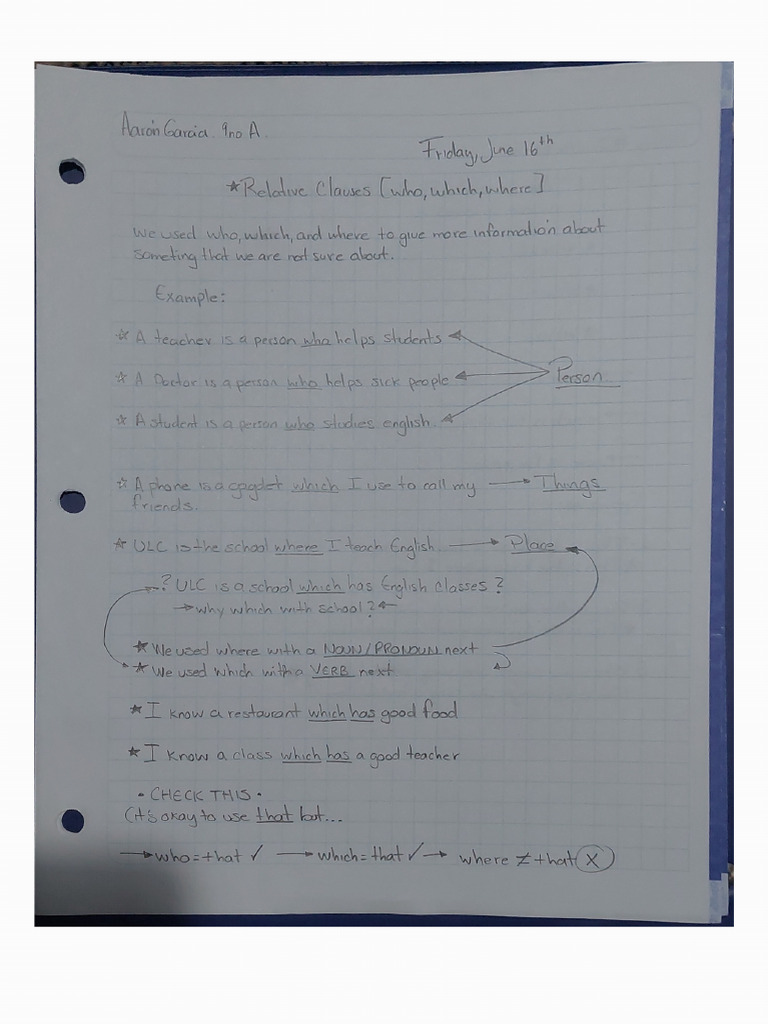 Aarón Garcia. 9no A.
Friday, June 16th
★Relative Clauses [who, which, where]
We used who, which, and where to give more information about
someting that we are not sure about.
Example:
☆ A teacher is a person who helps students
☆ A Doctor is a person who helps sick people
Person
☆ A student is a person who studies english
☆ A phone is a gagdet which I use to call my → Things
friends.
★ ULC is the school where I teach English → Place
? ULC is a school which has English classes ?
→ why which with school? ←
★ We used where with a NOUN/PRONOUN next
★ We used which with a VERB next
★ I know a restaurant which has good food
★ I know a class which has a good teacher
• CHECK THIS •
(It's okay to use that but...
→ who = that ✓ → which = that ✓ → where ≠ that X